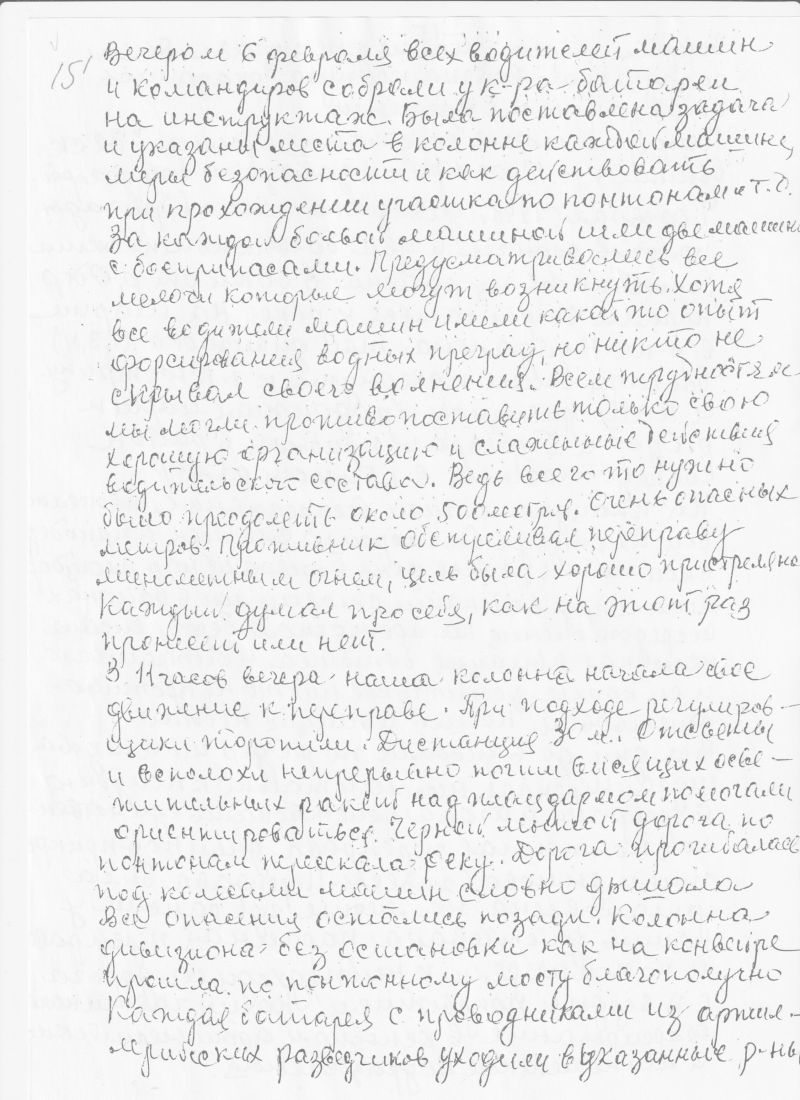 151
Вечером 6 февраля всех водителей машин
и командиров собрали у к-ра батареи
на инструктаж. Была поставлена задача
и указаны места в колонне каждой машине,
меры безопасности и как действовать
при прохождении участка по понтонам и т.д.
За каждой боевой машиной шли две машины
с боеприпасами. Предусматривались все
мелочи которые могут возникнуть. Хотя
все водители машин имели какой то опыт
форсирования водных преград, но никто не
скрывал своего волнения. Всем трудностям
мы могли противопоставить только свою
хорошую организацию и слаженные действия
водительского состава. Ведь всего то нужно
было преодолеть около 500 метров. Очень опасных
метров. Противник обстреливал переправу
минометным огнем, цель была хорошо пристреляна
Каждый думал про себя, как на этот раз
пронесет или нет.
В 11 часов вечера наша колонна начала свое
движение к переправе. При подходе регулиров-
щики торопили. Дистанция 30 м. Отсветы
и всполохи непрерывно почти висящих осве-
тительных ракет над плацдармом помогали
ориентироваться. Черной линией дорога по
понтонам пересекала реку. Дорога прогибалась
под колесами машин словно дышала
Все опасения остались позади. Колонна
дивизиона без остановки как на конвейре
прошла по понтонному мосту благополучно
Каждая батарея с проводниками из артил-
лерийских разведчиков уходили в указанные р-ны